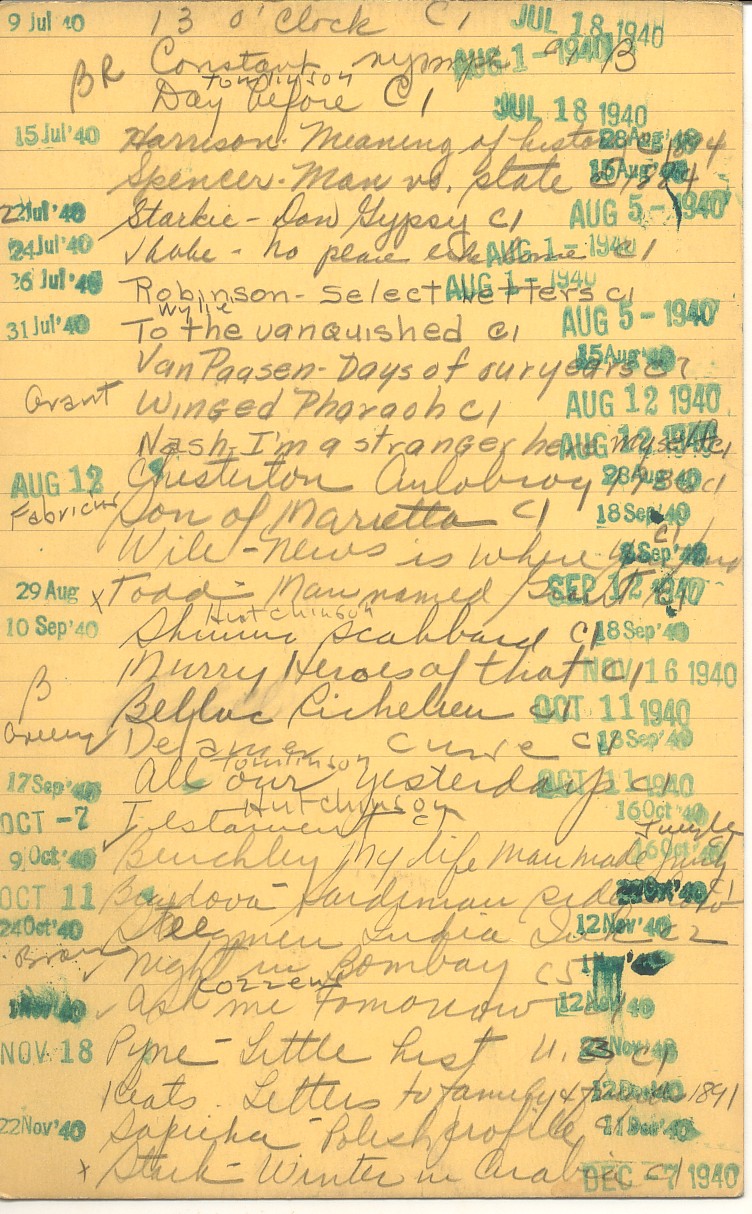 9 Jul 40 13 o'clock C1 JUL 18 1940
BR Constant nymph C1 B AUG 1 - 1940
Tomlinson
Day before C1 JUL 18 1940
15 Jul '40 Harrison - Meaning of history C1894 28 Aug '40
Spencer - Man vs. state C1884 15 Aug '40
22 Jul '40 Starkie - Don Gypsy C1 AUG 5 - 1940
24 Jul '40 - No place like home C1 AUG 1 - 1940
26 Jul '40 Robinson - Select letters C1 AUG 1 - 1940
Wylie
31 Jul '40 To the vanquished C1 AUG 5 - 1940
Van Paasen - Days of our years C7 15 Aug '40
Grant Winged Pharaoh C1 AUG 12 1940
Nash - I'm a stranger here myself C1 AUG 12 1940
AUG 12 Chesterton Autobiog 1936 C1 28 Aug '40
Fabricius Son of Marietta C1 18 Sep '40
Wile - News is where you find C1 Sep '40
29 Aug x Todd - Man named Grant C1 SEP 12 1940
Hutchinson
10 Sep '40 Shining Scabbard C1 18 Sep '40
Murry Heroes of that C1 NOV 16 1940
B Belloc Richelieu C1 OCT 11 1940
C1 18 Sep '40
Tomlinson
17 Sep '40 All our Yesterdays C1 OCT 11 1940
Hutchinson
OCT -7 Testament C1 16 Oct '40
Jungle
9 Oct '40 Benchley My life man made 16 Oct '40
OCT 11 Sardinian side
24 Oct '40 Steegmen India Ink C2 12 Nov '40
Brom Night in Bombay C5 Nov '40
Cozzens
Nov 40 Ask me Tomorrow 12 Nov 40
NOV 18 Pyne - Little hist U.S C1 23 Nov '40
Keats - Letters to family & 1891 12 Dec '40
22 Nov '40 Sapieha - Polish profile C1 11 Dec '40
x Stark - Winter in Arabia C1 DEC -7 1940